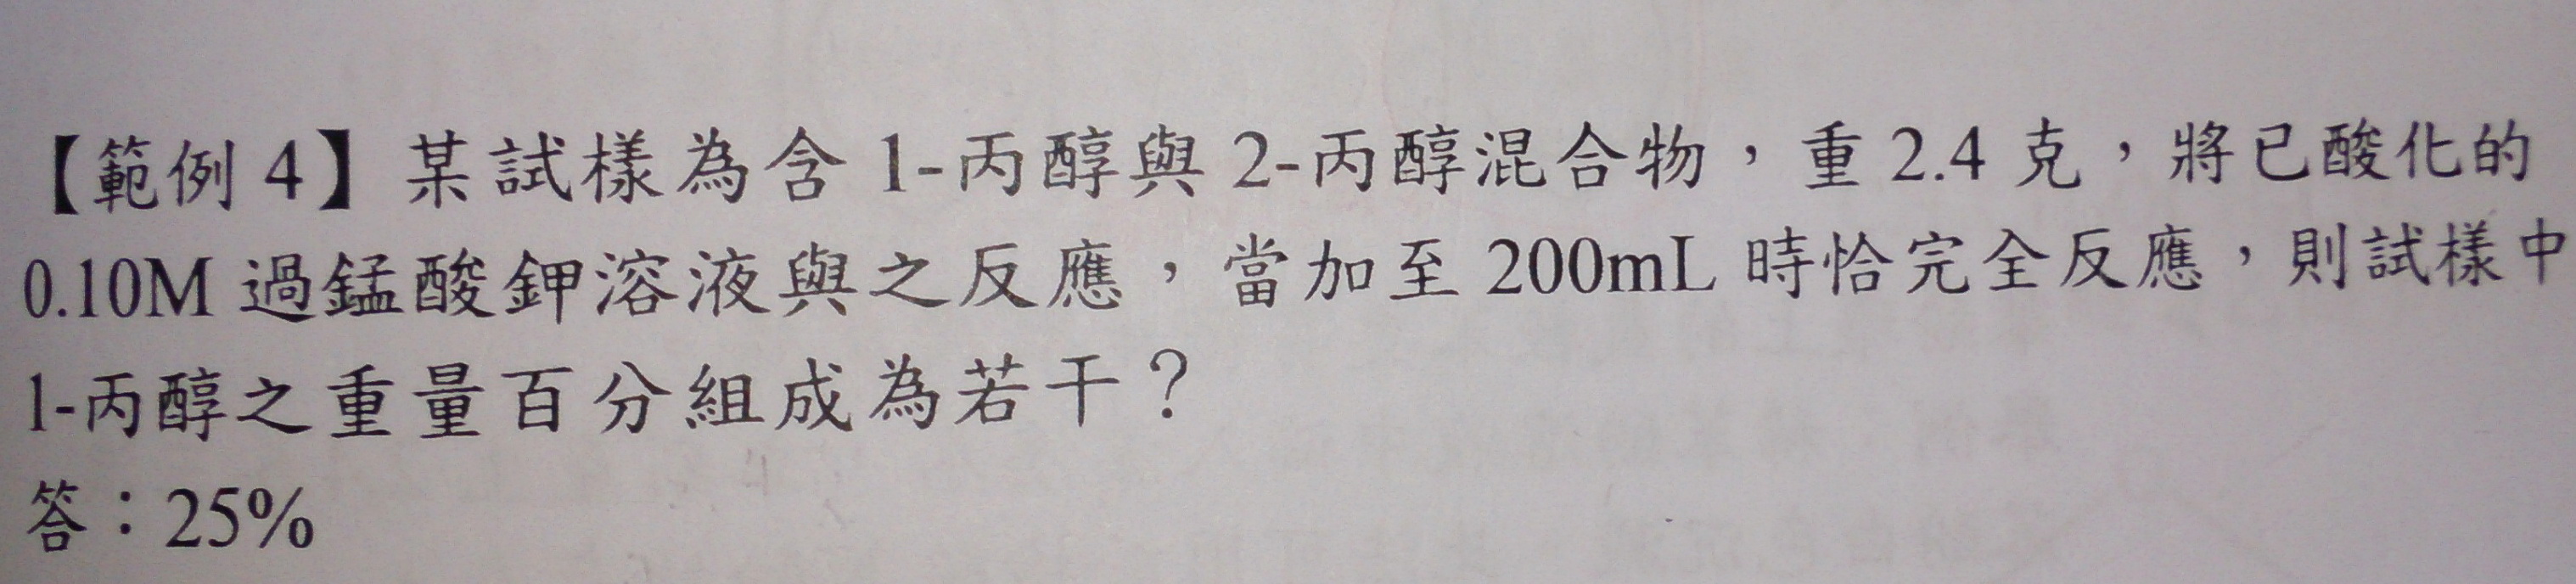 【範例 4】某試樣為含 1-丙醇與 2-丙醇混合物，重 2.4 克，將已酸化的
0.10M 過錳酸鉀溶液與之反應，當加至 200mL 時恰完全反應，則試樣中
1-丙醇之重量百分組成為若干？
答：25%